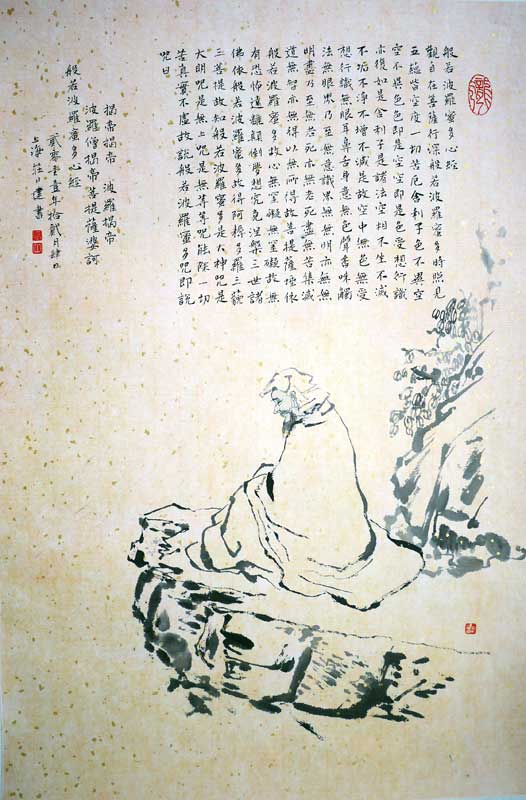 般若波羅蜜多心經
觀自在菩薩行深般若波羅蜜多時照見
五蘊皆空度一切苦厄舍利子色不異空
空不異色色即是空空即是色受想行識
亦復如是舍利子是諸法空相不生不滅
不垢不淨不增不減是故空中無色無受
想行識無眼耳鼻舌身意無色聲香味觸
法無眼界乃至無意識界無無明亦無無
明盡乃至無老死亦無老死盡無苦集滅
道無智亦無得以無所得故菩提薩埵依
般若波羅蜜多故心無罣礙無罣礙故無
有恐怖遠離顛倒夢想究竟涅槃三世諸
佛依般若波羅蜜多故得阿耨多羅三藐
三菩提故知般若波羅蜜多是大神咒是
大明咒是無上咒是無等等咒能除一切
苦真實不虛故說般若波羅蜜多咒即說
咒曰
揭帝揭帝 波羅揭帝
波羅僧揭帝菩提薩婆訶
般若波羅蜜多心經
貳零壹壹年拾貳月肆日
上海莊小建書